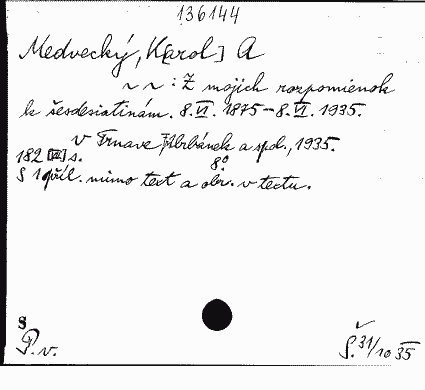 136144
Medvecký, K[arol] A
~ ~ : Z mojich rozpomienok
k šesdesiatinám. 8.VI. 1875–8.VI. 1935.
v Trnave, Urbánek a spol., 1935.
182 [II] s. 8°
S 1 príl. mimo text a obr. v textu.
S
P. v.
Š. 31/10 35